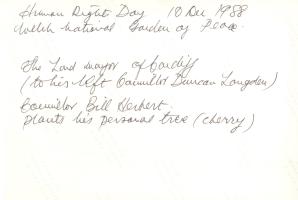 Human Right Day 10 Dec 1988
Welsh National Garden of Peace.
The Lord mayor of Cardiff
(to his left Councillor Duncan Langden)
Councillor Bill Herbert.
plants his personal tree (cherry)